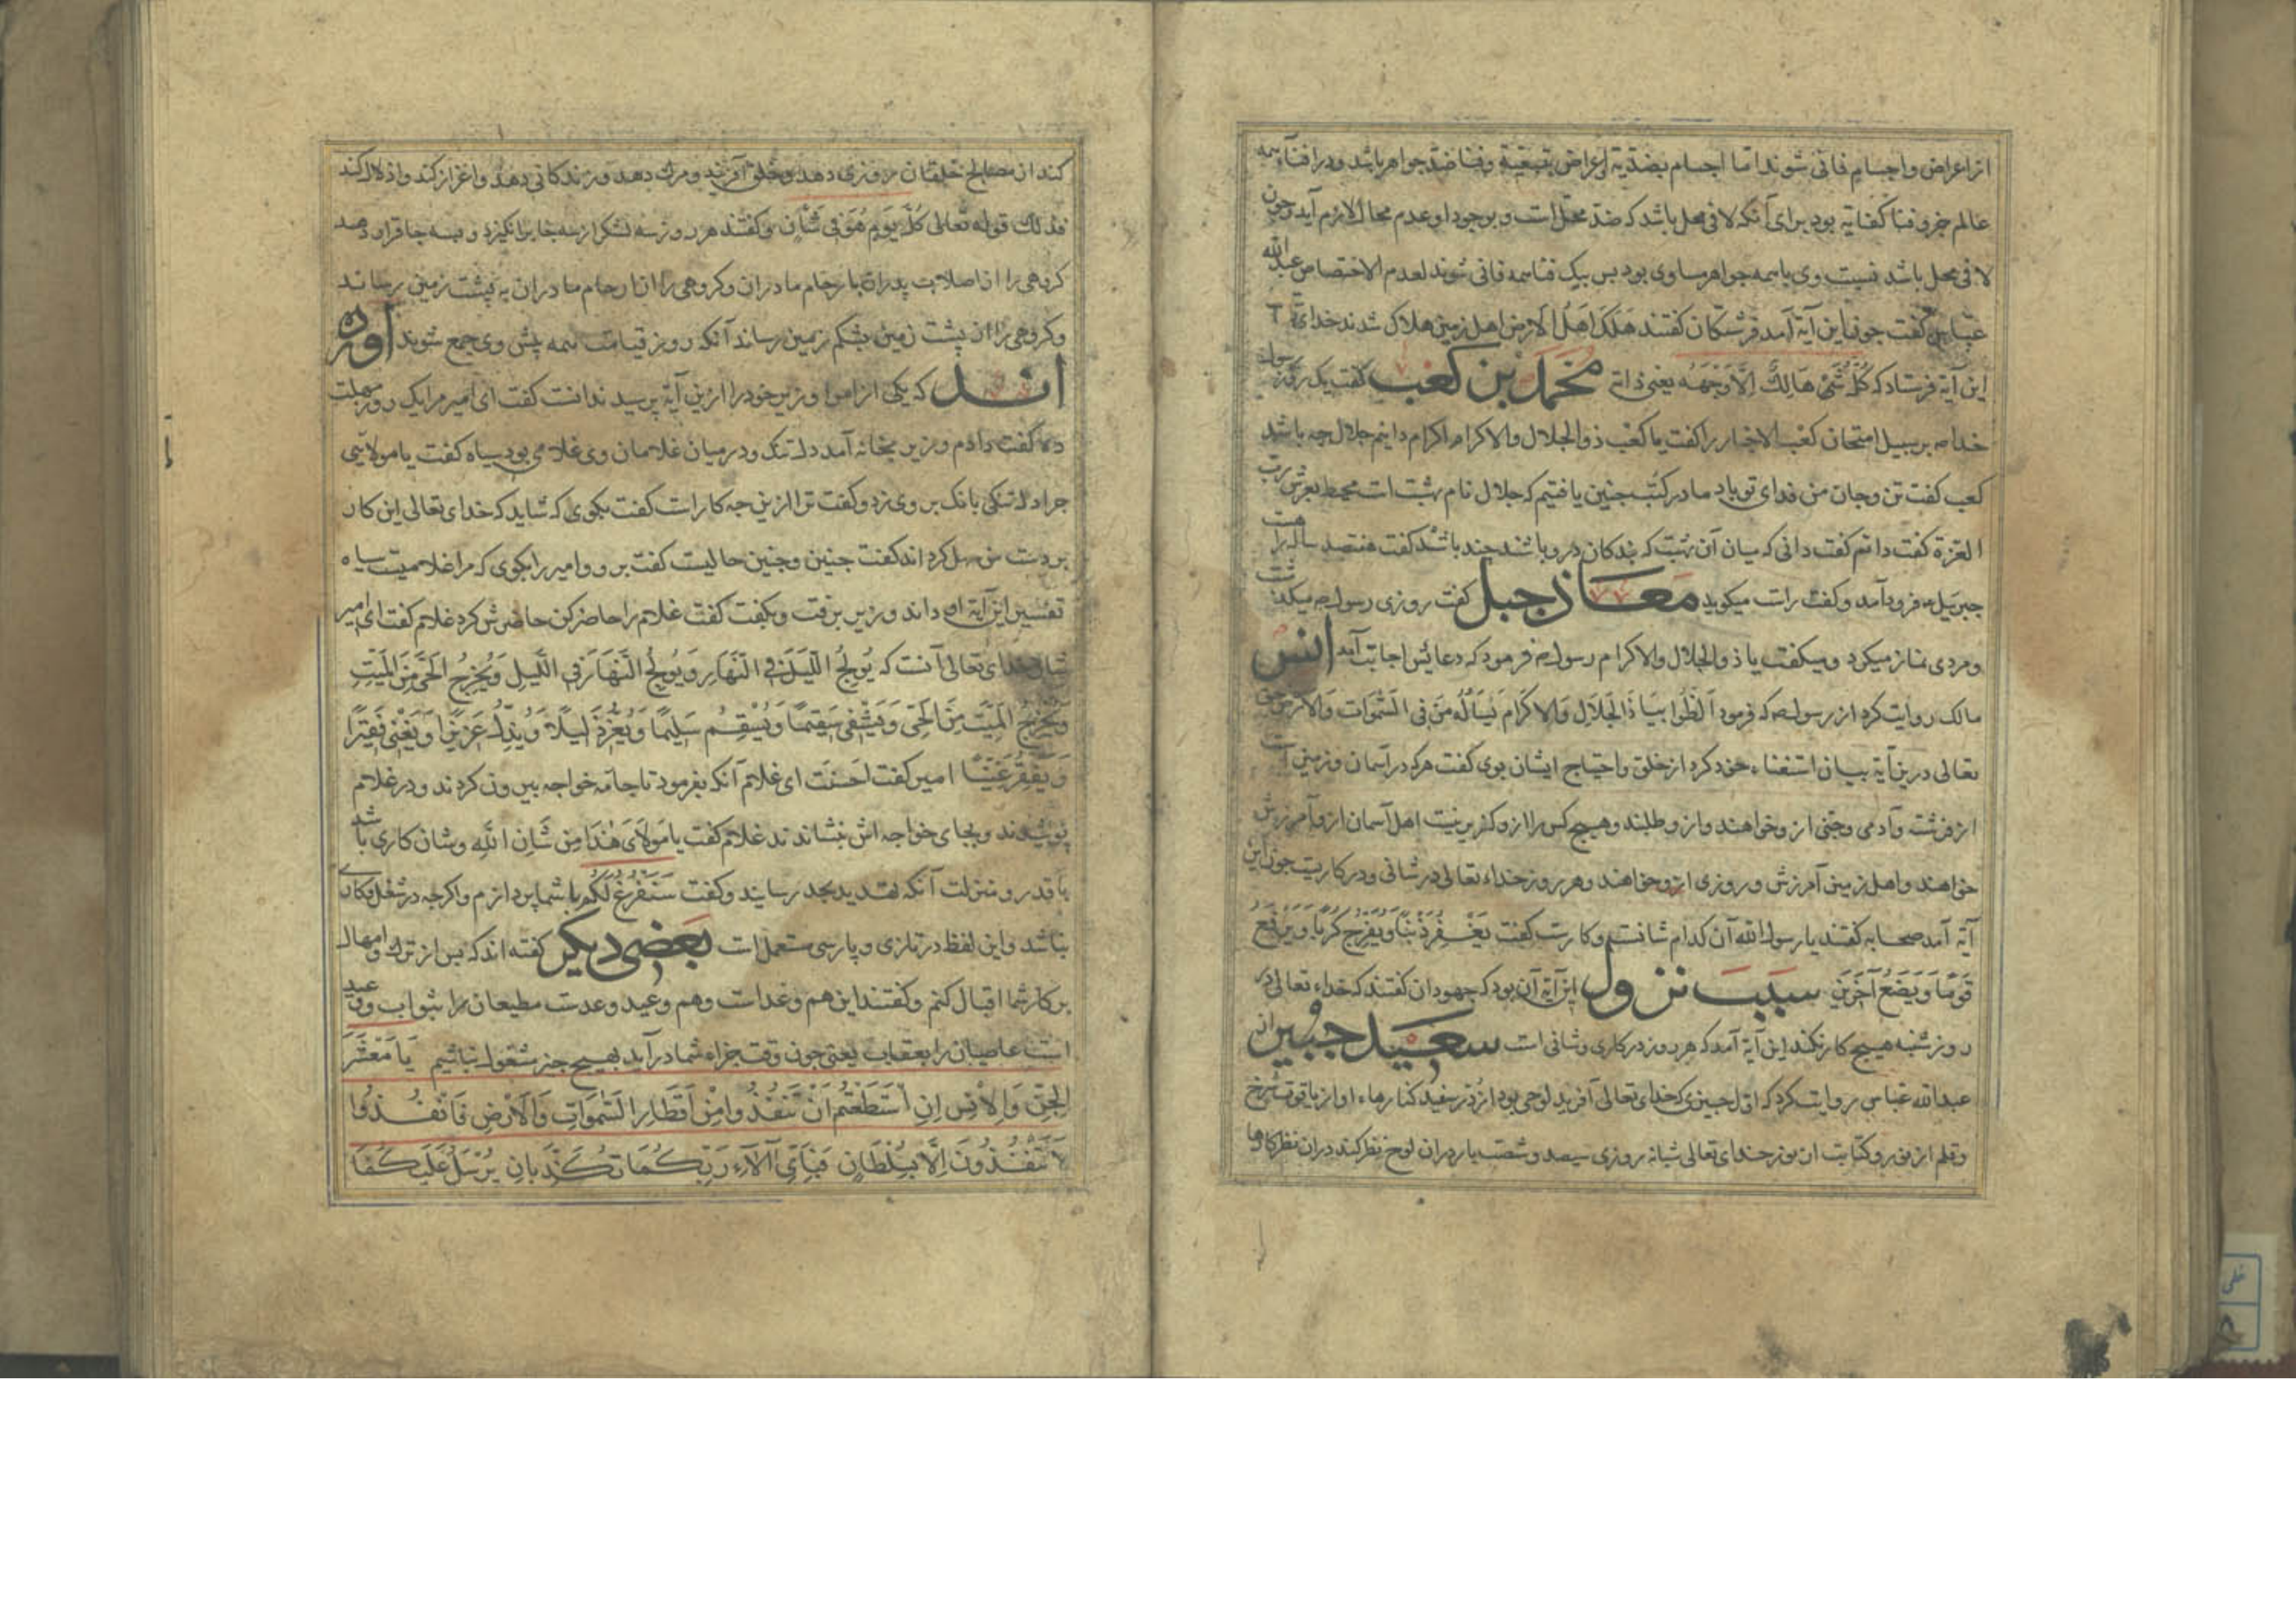 از اعراض و اجسام فانی شوند اما اجسام بضدیه اعراض بتبعیة و فنا ضد جواهر باشد و در افناء همه
عالم جزو فنا کفایة بود برای آنکه لا فی محل باشد که ضد محل است و بوجود او عدم محال لازم آید و چون
لا فی محل باشد نسبت وی با همه جواهر مساوی بود بس بیک فنا همه فانی شوند لعدم الاختصاص عبدالله
عباس گفت جون این آیة آمد فرشتکان کفتند هَلَکَ اَهْلُ الاَرْض اهل زمین هلاک شدند خدای تع
این آیة فرستاد که کُلُّ شَیْءٍ هَالِکٌ اِلَّا وَجْهَهُ یعنی ذاته محمد بن کعب کفت یک روز رسول
خدا صه بر سبیل امتحان کعب الاحبار را کفت یا کعب ذو الجلال والاکرام اکرام دانیم جلال جه باشد
کعب کفت تن و جان من فدای تو باد ما در کتب جنین یافتیم که جلال نام بتیست محیط بعرش رب
العزة کفت دانم کفت دانی که میان آن که بندکان درو باشند جند باشد کفت هفتصد ساله راهست
جبرئیل فرود آمد و کفت راست میکوید معاذ جبل کفت روزی رسول صه میکذشت
و مردی نماز میکرد و میکفت یا ذو الجلال والاکرام رسول صه فرمود که دعایش اجابت آمد انس
مالک روایت کرد از رسول صه که فرمود اَلِظُّوا بِیَا ذَا الْجَلَالِ وَالاِکْرَامِ یَسْأَلُهُ مَنْ فِی السَّمٰوَاتِ وَالاَرْضِ حق
تعالی درین آیة بیان استغناء خود کرد از خلق و احتیاج ایشان بوی کفت هرکه در آسمان و زمین است
از فرشته و آدمی و جنی ازو خواهند و ازو طلبند و هیچ کس را ازو کزیر نیست اهل آسمان ازو آمرزش
خواهند و اهل زمین آمرزش و روزی ازو خواهند و هر روز خداء تعالی در شانی و در کاریست جون این
آیة آمد صحابه کفتند یا رسول الله آن کدام شانست و کارست کفت یَغْفِرُ ذَنْبًا وَ یُفَرِّجُ کَرْبًا وَ یَرْفَعُ
قَوْمًا وَ یَضَعُ آخَرِینَ سبب نزول این آیة آن بود که جهودان کفتند که خداء تعالی در
روز شنبه هیچ کار نکند این آیة آمد که هر روز در کاری و شانی است سعید جبیر از
عبدالله عباس روایت کرد که اول جیزی که خدای تعالی آفرید لوحی بود از در سفید کنارهاء او از یاقوت سرخ
و قلم از نور و کتابت از نور خدای تعالی شبانه روزی سیصد و شصت بار دران لوح نظر کند دران نظر کارها
کند از مصالح خلقان روزی دهد و خلق آفریند و مرک دهد و زندکانی دهد و اعزاز کند و اذلال کند
فذلک قوله تعالی کُلَّ یَوْمٍ هُوَ فِی شَأْنٍ و کفتند هر روز سه لشکر از سه جا برانکیزد و بسه جا قرار دهد
کروهی را از اصلاب پدران بارحام مادران و کروهی را از ارحام مادران به پشت زمین رساند
و کروهی را از پشت زمین بشکم زمین رساند آنکه روز قیامت همه پیش وی جمع شوند آورده
اند که یکی از امرا وزیر خود را ازین آیة پرسید ندانست کفت ای امیر مرا یک روز مهلت
ده کفت دادم وزیر بخانه آمد دلتنک و در میان غلامان وی غلامی بود سیاه کفت یا مولایی
جرا دلتنکی بانک بر وی زد و کفت ترا ازین جه کارست کفت بکوی که شاید که خدای تعالی این کار
بر دست من سهل کرداند کفت جنین و جنین حالیست کفت برو و امیر را بکوی که مرا غلامیست سیاه
تفسیر این آیة او داند وزیر برفت و بکفت کفت غلام را حاضر کن حاضرش کرد غلام کفت ای امیر
شان خدای تعالی آنست که یُولِجُ اللَّیْلَ فِی النَّهَارِ وَ یُولِجُ النَّهَارَ فِی اللَّیْلِ وَ یُخْرِجُ الْحَیَّ مِنَ الْمَیِّتِ
وَ یُخْرِجُ الْمَیِّتَ مِنَ الْحَیِّ وَ یَشْفِی سَقِیمًا وَ یُسْقِمُ سَلِیمًا وَ یُعِزُّ ذَلِیلًا وَ یُذِلُّ عَزِیزًا وَ یُغْنِی فَقِیرًا
وَ یُفْقِرُ غَنِیًّا امیر کفت احسنت ای غلام آنکه بفرمود تا جامه خواجه بیرون کردند و در غلام
پوشیدند و بجای خواجه اش بنشاندند غلام کفت یا مَوْلَایَ هٰذَا مِنْ شَأْنِ اللّٰهِ و شان کاری باشد
با قدر و منزلت آنکه تهدید بجد رسانید و کفت سَنَفْرُغُ لَکُمْ با شما پردازم و اکرجه در شغل و کاری
نباشد و این لفظ در تازی و پارسی مستعمل است بعضی دیکر کفته اند که بس از ترک و امهال
بر کار شما اقبال کنم و کفتند این هم وعداست و هم وعید وعدست مطیعان را بثواب و وعید
است عاصیان را بعقاب یعنی جون وقت جزاء شما درآید بهیچ جیز مشغول نباشیم یَا مَعْشَرَ
الْجِنِّ وَالْاِنْسِ اِنِ اسْتَطَعْتُمْ اَنْ تَنْفُذُوا مِنْ اَقْطَارِ السَّمٰوَاتِ وَالْاَرْضِ فَانْفُذُوا
لَا تَنْفُذُونَ اِلَّا بِسُلْطَانٍ فَبِاَیِّ آلَاءِ رَبِّکُمَا تُکَذِّبَانِ یُرْسَلُ عَلَیْکُمَا